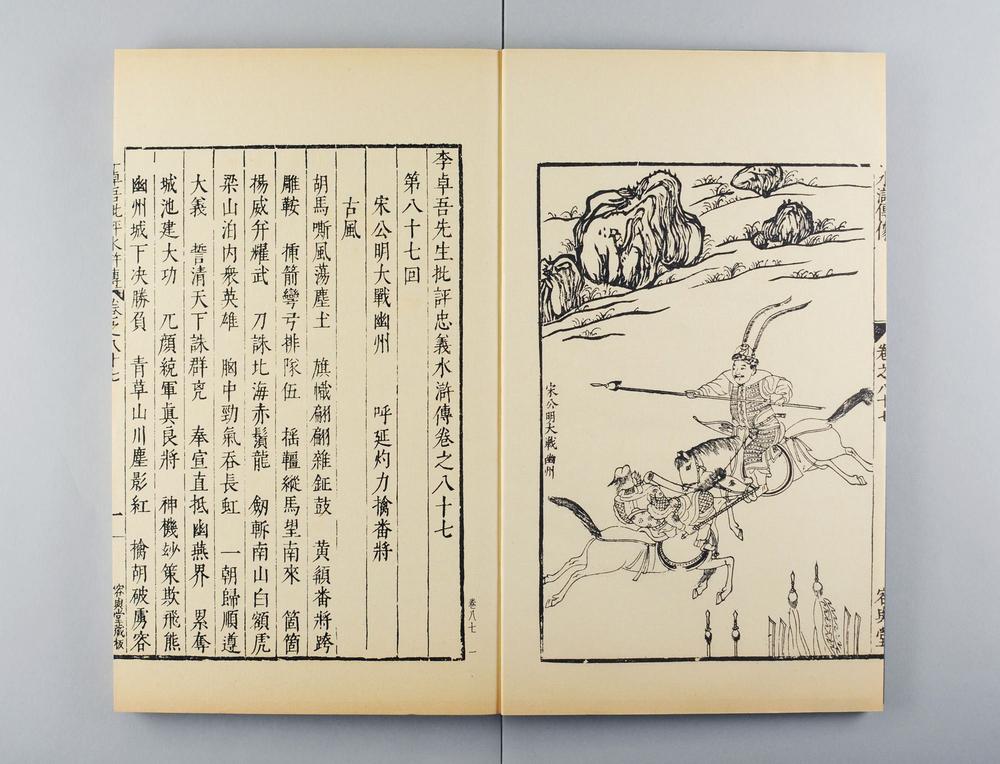 李卓吾先生批評忠義水滸傳卷之八十七
第八十七回
宋公明大戰幽州　呼延灼力擒番將
古風
胡馬嘶風蕩塵土　旗幟翩翩雜鉦鼓　黄頟番將跨
雕鞍　揷箭彎弓排隊伍　摇韁縱馬望南來　箇箇
楊威并耀武　刀誅北海赤鬚龍　劒斬南山白額虎
梁山泊内衆英雄　胸中勁氣吞長虹　一朝歸順遵
大義　誓清天下誅群兇　奉宣直抵幽燕界　累奪
城池建大功　兀顔統軍真良將　神機妙策欺飛熊
幽州城下决勝負　青草山川塵影紅　擒胡破虜容
卓吾批評水滸傳　卷之八十七　一　容與堂藏板
卷八七　一
水滸傳像　卷之八十七　容與堂
宋公明大戰幽州